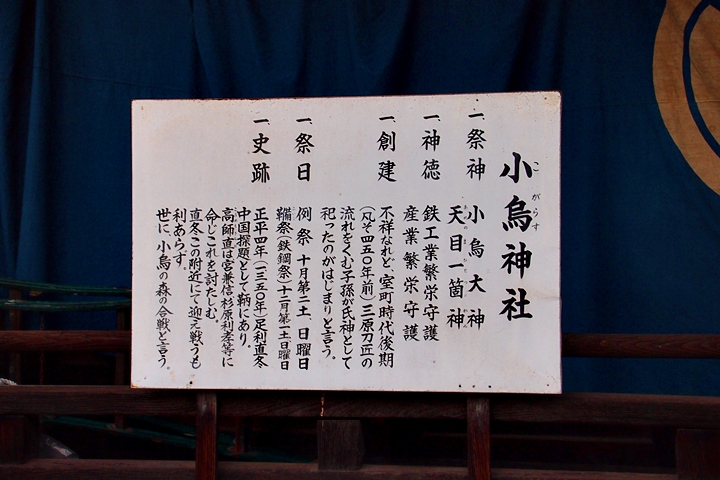 小烏神社
こがらす
一祭神 小烏大神
天目一箇神
一神徳 鉄工業繁栄守護
産業繁栄守護
一創建 不祥なれど、室町時代後期
(凡そ四五〇年前)三原刀匠の
流れをくむ子孫が氏神として
祀ったのがはじまりと言う。
一祭日 例祭 十月第二土、日曜日
鞴祭(鉄鋼祭)十二月第一土、日曜日
一史跡 正平四年(一三五〇年)足利直冬
中国探題として鞆にあり。
高師直は宮兼信杉原利孝等に
命じこれを討たしむ。
直冬この附近にて迎え戦うも
利あらず。
世に、小烏の森の合戦と言う。